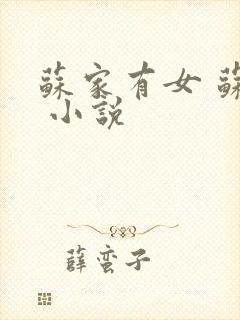 蘇家有女 蘇
小説
薛蛮子